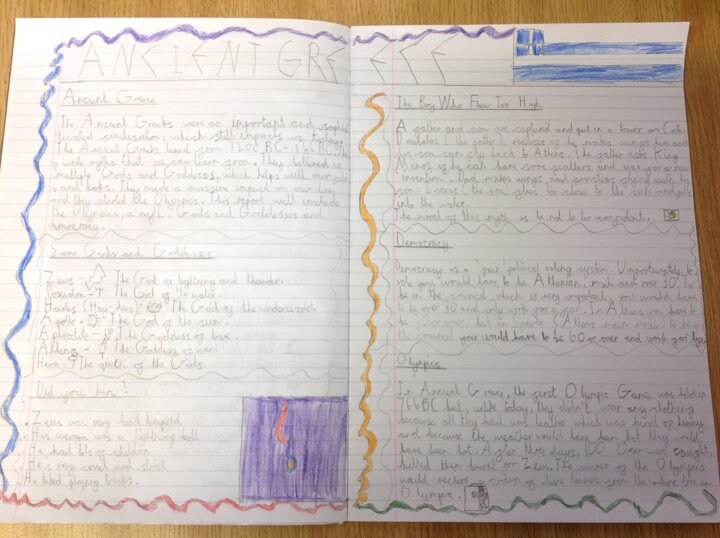 ANCIENT GREECE
Ancient Greece
The Ancient Greeks were an important and sophis-
ticated civilization, which still impacts us today.
The Ancient Greeks lived from 1200 BC - 146 BC. They
wrote myths that we can learn from. They believed in
multiple Gods and Goddesses, which helps with our
and books. They made a massive impact on our lives
and they started the Olympics. This report will include
the Olympics, a myth, Gods and Goddesses and
democracy.
Some Gods and Goddesses
Zeus - The God of lightning and thunder
Poseidon - The God of the water.
Hades (Hay-dees) The God of the underworld
Apollo - The God of the sun.
Aphrodite - The Goddess of love.
Athena - The Goddess of war.
Hera - The queen of the Gods.
Did you know?
. Zeus was very bad tempered
. His weapon was a lightning bolt
. He had lots of children
. He is very cruel and
. He liked playing tricks.
The Boy Who Flew Too High
A father and son are captured and put in a tower on
(the father), realises if he makes wings him and
his son can fly back to Athens. The father asks King
Minos if he can have some feathers and wax for a new
invention. makes wings and practises flying with
son. (the son) goes too close to the sun and
into the water.
The moral of this myth is to not be too confident.
Democracy
Democracy is a 'fair' political voting system. Unfortunately, to
vote you would have to be Athenian, male and over 30. To
be in the council, which is very important you would have
to be over 30 and only work for a year. In Athens you have to
be 30 or over, but in (Athens main rival) to be in
the council you would have to be 60 or over and work for
Olympics
In Ancient Greece, the first Olympic Games was held in
776BC but, unlike today, they didn't wear any clothing
because all they had was leather which was kind of heavy
and because the weather would have been hot they would
have been hot. After three days, 100 Oxen were caught,
killed then burnt for Zeus. The winner of the Olympics
would receive a crown of olive leaves from the olive tree in
Olympia.